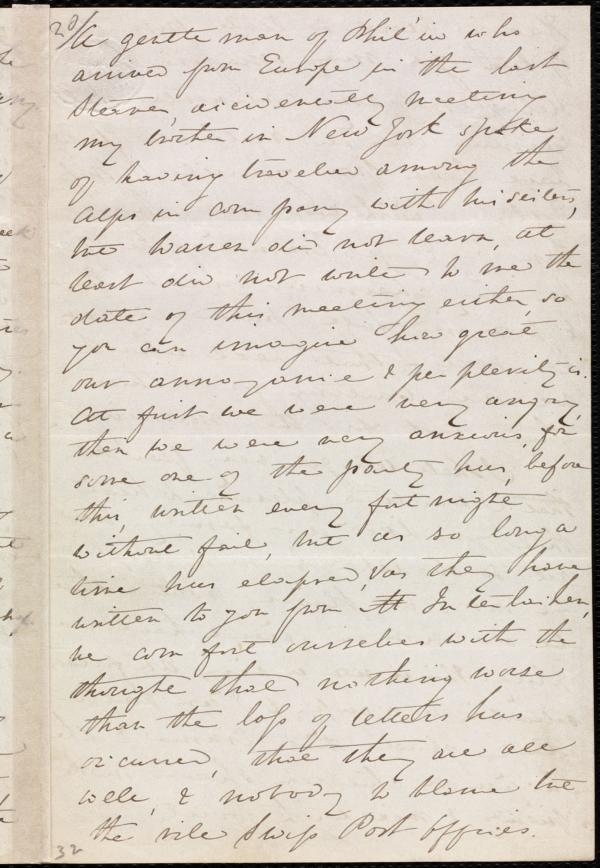 28/
A gentleman of Phil'ia who
arrived from Europe in the last
steamer accidentally meeting
my brother in New York spoke
of having travelled among the
Alps in company with his sisters,
but Warren did not learn, at
least did not write to me the
date of this meeting either, so
you can imagine how great
our annoyance & perplexity is.
At first we were very angry,
then we were very anxious, for
some one of the party has, before
this, written every fortnight
without fail, but as so long a
time has elapsed, & as they have
written to you from Interlachen,
we comfort ourselves with the
thought that nothing worse
than the loss of letters has
occurred, that they are all
well, & nobody to blame but
the vile Swiss Post Offices.
32